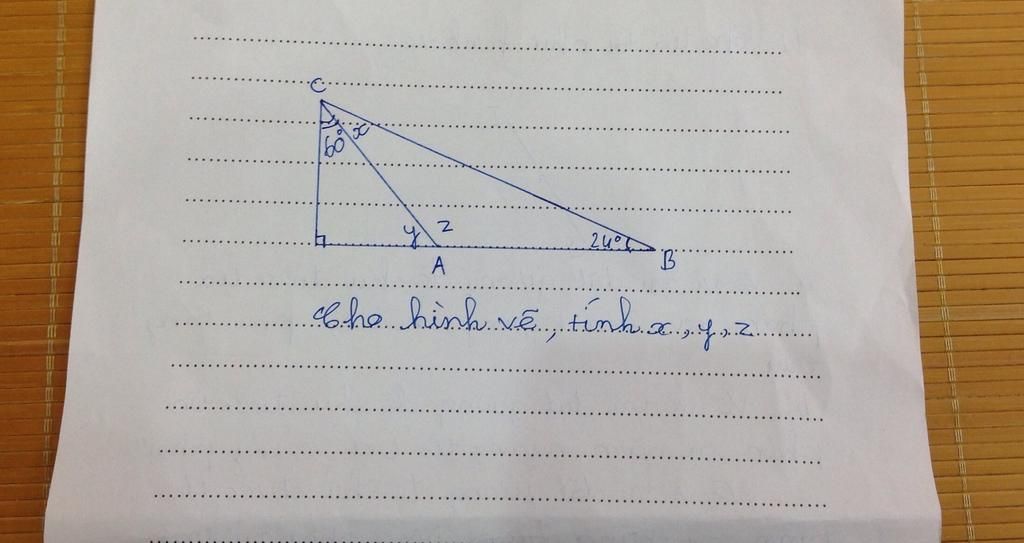 C
60° x
y z 24°
A B
Cho hình vẽ, tính x, y, z